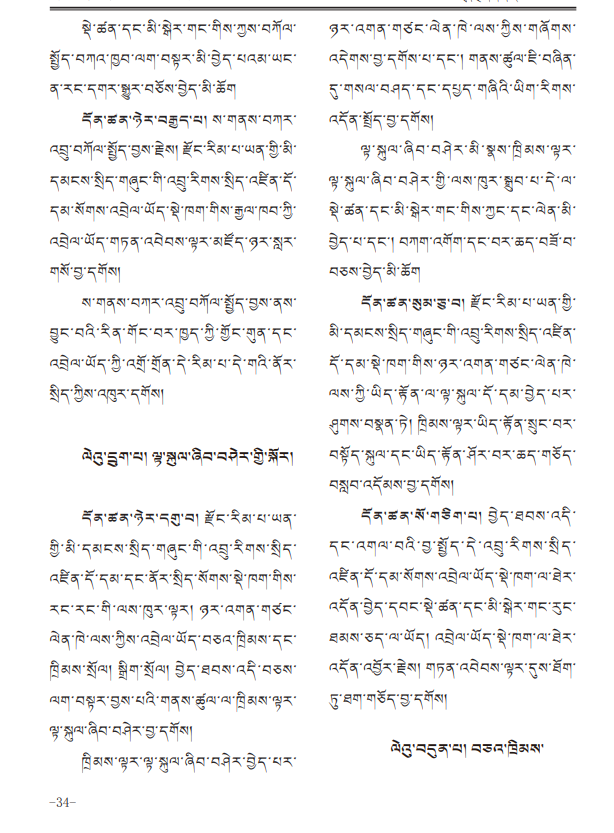 སྡེ་ཚན་དང་མི་སྒེར་གང་གིས་ཀྱས་བཀོལ་
སྤྱོད་བཀའ་ཁྱབ་ལག་བསྟར་མི་བྱེད་པའམ་ཡང་
ན་རང་དགར་སྒྱུར་བཅོས་བྱེད་མི་ཆོག
དོན་ཚན་ཉེར་བརྒྱད་པ། ས་གནས་བཀར་
འབྲུ་བཀོལ་སྤྱོད་བྱས་རྗེས། རྫོང་རིམ་པ་ཡན་གྱི་མི་
དམངས་སྲིད་གཞུང་གི་འབྲུ་རིགས་སྲིད་འཛིན་དོ་
དམ་སོགས་འབྲེལ་ཡོད་སྡེ་ཁག་གིས་རྒྱལ་ཁབ་ཀྱི་
འབྲེལ་ཡོད་གཏན་འབེབས་ལྟར་མཛོད་ཉར་སླར་
གསོ་བྱ་དགོས།
ས་གནས་བཀར་འབྲུ་བཀོལ་སྤྱོད་བྱས་ནས་
བྱུང་བའི་རིན་གོང་བར་ཁྱད་ཀྱི་གྱོང་གུན་དང་
འབྲེལ་ཡོད་ཀྱི་འགྲོ་གྲོན་དེ་རིམ་པ་དེ་གའི་ནོར་
སྲིད་ཀྱིས་འཁུར་དགོས།
ལེའུ་དྲུག་པ། ལྟ་སྐུལ་ཞིབ་བཤེར་གྱི་སྐོར།
དོན་ཚན་ཉེར་དགུ་བ། རྫོང་རིམ་པ་ཡན་
གྱི་མི་དམངས་སྲིད་གཞུང་གི་འབྲུ་རིགས་སྲིད་
འཛིན་དོ་དམ་དང་ནོར་སྲིད་སོགས་སྡེ་ཁག་གིས་
རང་རང་གི་ལས་ཁུར་ལྟར། ཉར་འགན་གཙང་
ལེན་ཁེ་ལས་ཀྱིས་འབྲེལ་ཡོད་བཅའ་ཁྲིམས་དང་
ཁྲིམས་སྲོལ། སྒྲིག་སྲོལ། བྱེད་ཐབས་འདི་བཅས་
ལག་བསྟར་བྱས་པའི་གནས་ཚུལ་ལ་ཁྲིམས་ལྟར་
ལྟ་སྐུལ་ཞིབ་བཤེར་བྱ་དགོས།
ཁྲིམས་ལྟར་ལྟ་སྐུལ་ཞིབ་བཤེར་བྱེད་པར་
-34-
ཉར་འགན་གཙང་ལེན་ཁེ་ལས་ཀྱིས་གཞོགས་
འདེགས་བྱ་དགོས་པ་དང་། གནས་ཚུལ་ཇི་བཞིན་
དུ་གསལ་བཤད་དང་དཔྱད་གཞིའི་ཡིག་རིགས་
འདོན་སྤྲོད་བྱ་དགོས།
ལྟ་སྐུལ་ཞིབ་བཤེར་མི་སྣས་ཁྲིམས་ལྟར་
ལྟ་སྐུལ་ཞིབ་བཤེར་གྱི་ལས་ཁུར་སྒྲུབ་པ་དེ་ལ་
སྡེ་ཚན་དང་མི་སྒེར་གང་གིས་ཀྱང་དང་ལེན་མི་
བྱེད་པ་དང་། བཀག་འགོག་དང་བར་ཆད་བཟོ་བ་
བཅས་བྱེད་མི་ཆོག
དོན་ཚན་སུམ་ཅུ་བ། རྫོང་རིམ་པ་ཡན་གྱི་
མི་དམངས་སྲིད་གཞུང་གི་འབྲུ་རིགས་སྲིད་འཛིན་
དོ་དམ་སྡེ་ཁག་གིས་ཉར་འགན་གཙང་ལེན་ཁེ་
ལས་ཀྱི་ཡིད་རྟོན་ལ་ལྟ་སྐུལ་དོ་དམ་བྱེད་པར་
ཤུགས་བསྣན་ཏེ། ཁྲིམས་ལྟར་ཡིད་རྟོན་སྲུང་བར་
བསྟོད་སྐུལ་དང་ཡིད་རྟོན་ཤོར་བར་ཆད་གཅོད་
བསླབ་འདོམས་བྱ་དགོས།
དོན་ཚན་སོ་གཅིག་པ། བྱེད་ཐབས་འདི་
དང་འགལ་བའི་བྱ་སྤྱོད་དེ་འབྲུ་རིགས་སྲིད་
འཛིན་དོ་དམ་སོགས་འབྲེལ་ཡོད་སྡེ་ཁག་ལ་ཐེར་
འདོན་བྱེད་དབང་སྡེ་ཚན་དང་མི་སྒེར་གང་རུང་
ཐམས་ཅད་ལ་ཡོད། འབྲེལ་ཡོད་སྡེ་ཁག་ལ་ཐེར་
འདོན་འབྱོར་རྗེས། གཏན་འབེབས་ལྟར་དུས་ཐོག་
ཏུ་ཐག་གཅོད་བྱ་དགོས།
ལེའུ་བདུན་པ། བཅའ་ཁྲིམས་